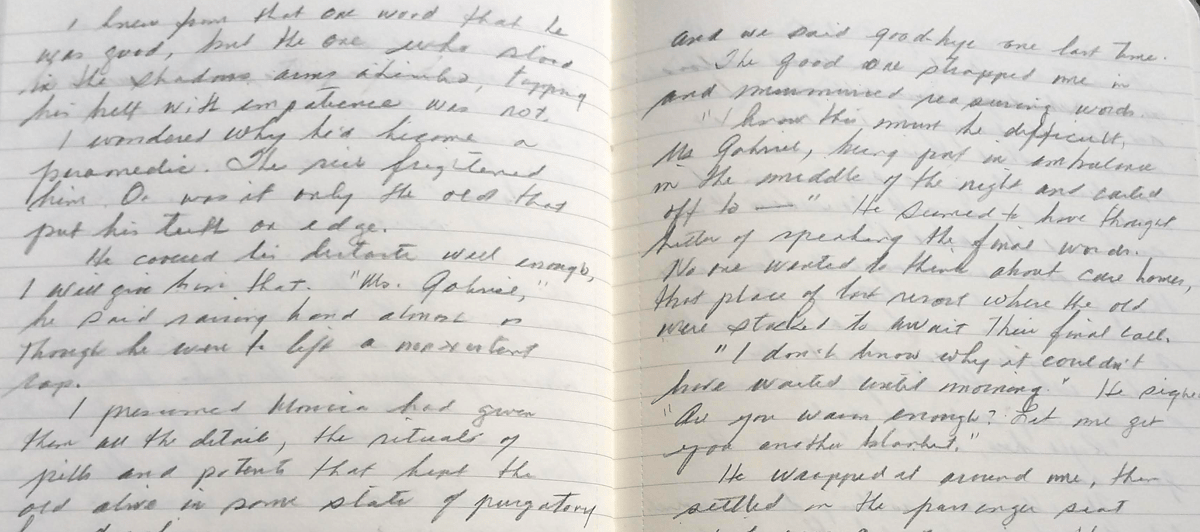 I knew from that one word that he
was good, but the one who stood
in the shadows arms akimbo, tapping
his belt with impatience was not.
I wondered why he'd become a
paramedic. The sick frightened
him. Or was it only the old that
put his teeth on edge.
He covered his distaste well enough,
I will give him that. "Ms. Gabriel,"
he said raising hand almost as
though he were to lift a nonexistent
cap.
I presumed Monica had given
them all the details, the rituals of
pills and potents that kept the
old alive in some state of purgatory
and we said goodbye one last time.
The good one strapped me in
and murmured reassuring words.
"I know this must be difficult,
Ms Gabriel, being put in ambulance
in the middle of the night and carted
off to — " He seemed to have thought
better of speaking the final words.
No one wanted to think about care homes,
that place of last resort where the old
were stacked to await their final call.
"I don't know why it couldn't
have waited until morning." He sighed
"Are you warm enough? Let me get
you another blanket."
He wrapped it around me, then
settled in the passenger seat